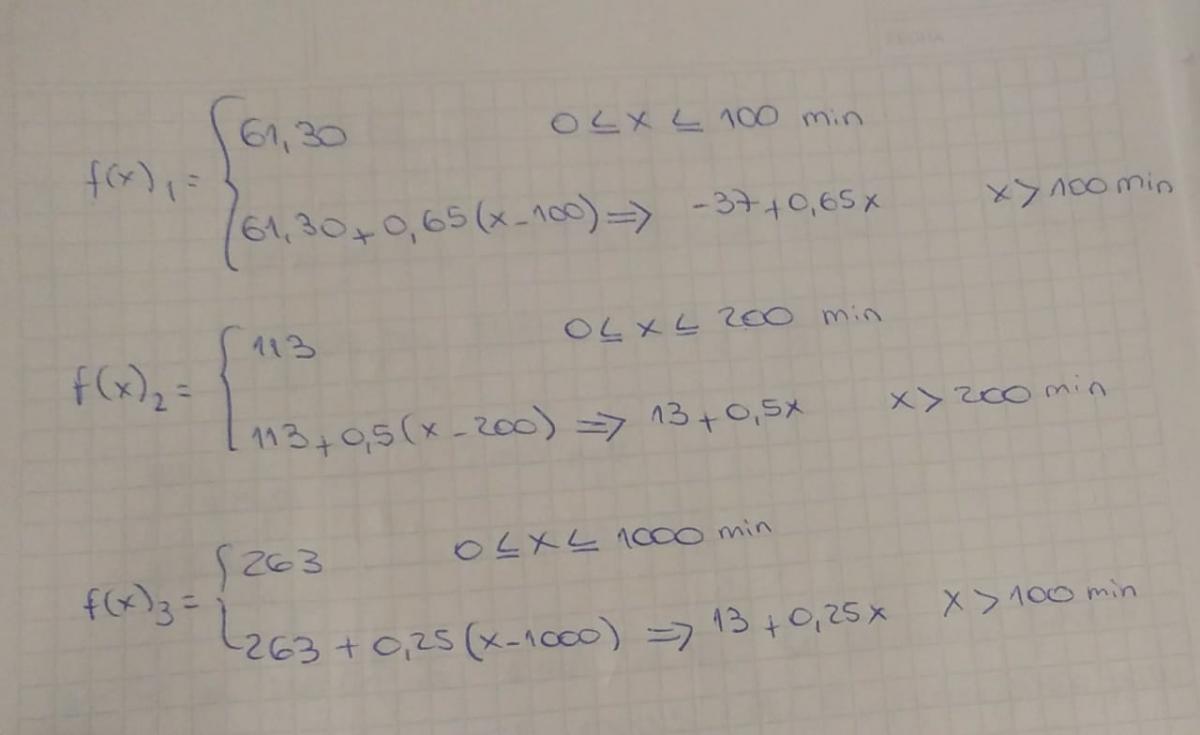 61,30 0 ≤ x ≤ 100 min
f(x)₁ =
61,30 + 0,65(x - 100) ⇒ -37 + 0,65x x > 100 min
113 0 ≤ x ≤ 200 min
f(x)₂ =
113 + 0,5(x - 200) ⇒ 13 + 0,5x x > 200 min
263 0 ≤ x ≤ 1000 min
f(x)₃ =
263 + 0,25(x - 1000) ⇒ 13 + 0,25x x > 100 min